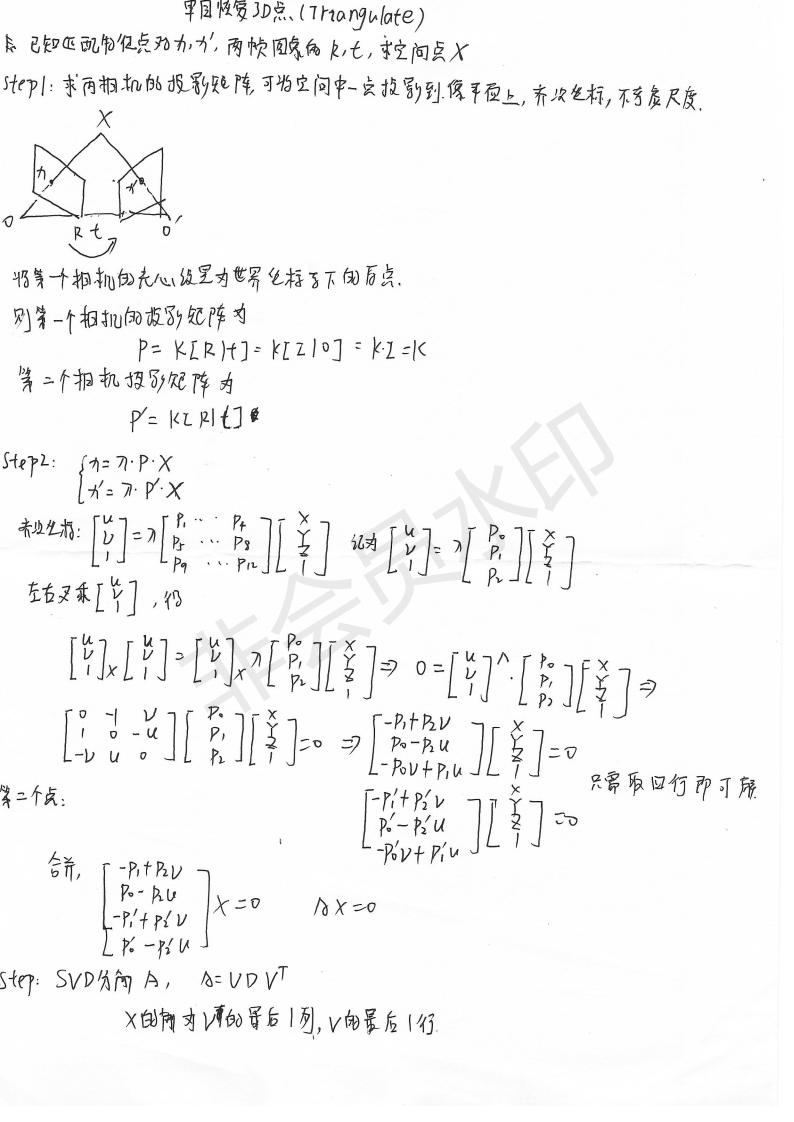 单目恢复3D点 (Triangulate)
已知匹配特征点对 x, x', 两帧图像的 R, t, 求空间点 X
Step1: 求两相机的投影矩阵, 可将空间中一点投影到像平面上, 齐次坐标, 不考虑尺度.
X
x x'
O R t O'
将第一个相机的光心设置为世界坐标系下的原点.
则第一个相机的投影矩阵为
P = K[R|t] = K[I|0] = K·I = K
第二个相机投影矩阵为
P' = K[R|t]
Step2: { x = λ·P·X
x' = λ·P'·X
齐次坐标: [u v 1] = λ [P1 ·· P4 P5 ··· P8 P9 ··· P12] [X Y Z 1] 记为 [u v 1] = λ [P0 P1 P2] [X Y Z 1]
左右叉乘 [u v 1], 得
[u v 1]x [u v 1] = [u v 1]x λ [P0 P1 P2] [X Y Z 1] ⇒ 0 = [u v 1]^ · [P0 P1 P2] [X Y Z 1] ⇒
[0 -1 v 1 0 -u -v u 0] [P0 P1 P2] [X Y Z 1] = 0 ⇒ [-P1+P2v P0-P2u -P0v+P1u] [X Y Z 1] = 0
只需取四行即可解
第二个点: [-P1'+P2'v P0'-P2'u -P0'v+P1'u] [X Y Z 1] = 0
合并, [-P1+P2v P0-P2u -P1'+P2'v P0'-P2'u] X = 0 AX = 0
Step: SVD分解 A, A = UDV^T
X的解为V的最后1列, V的最后1行.
非会员水印